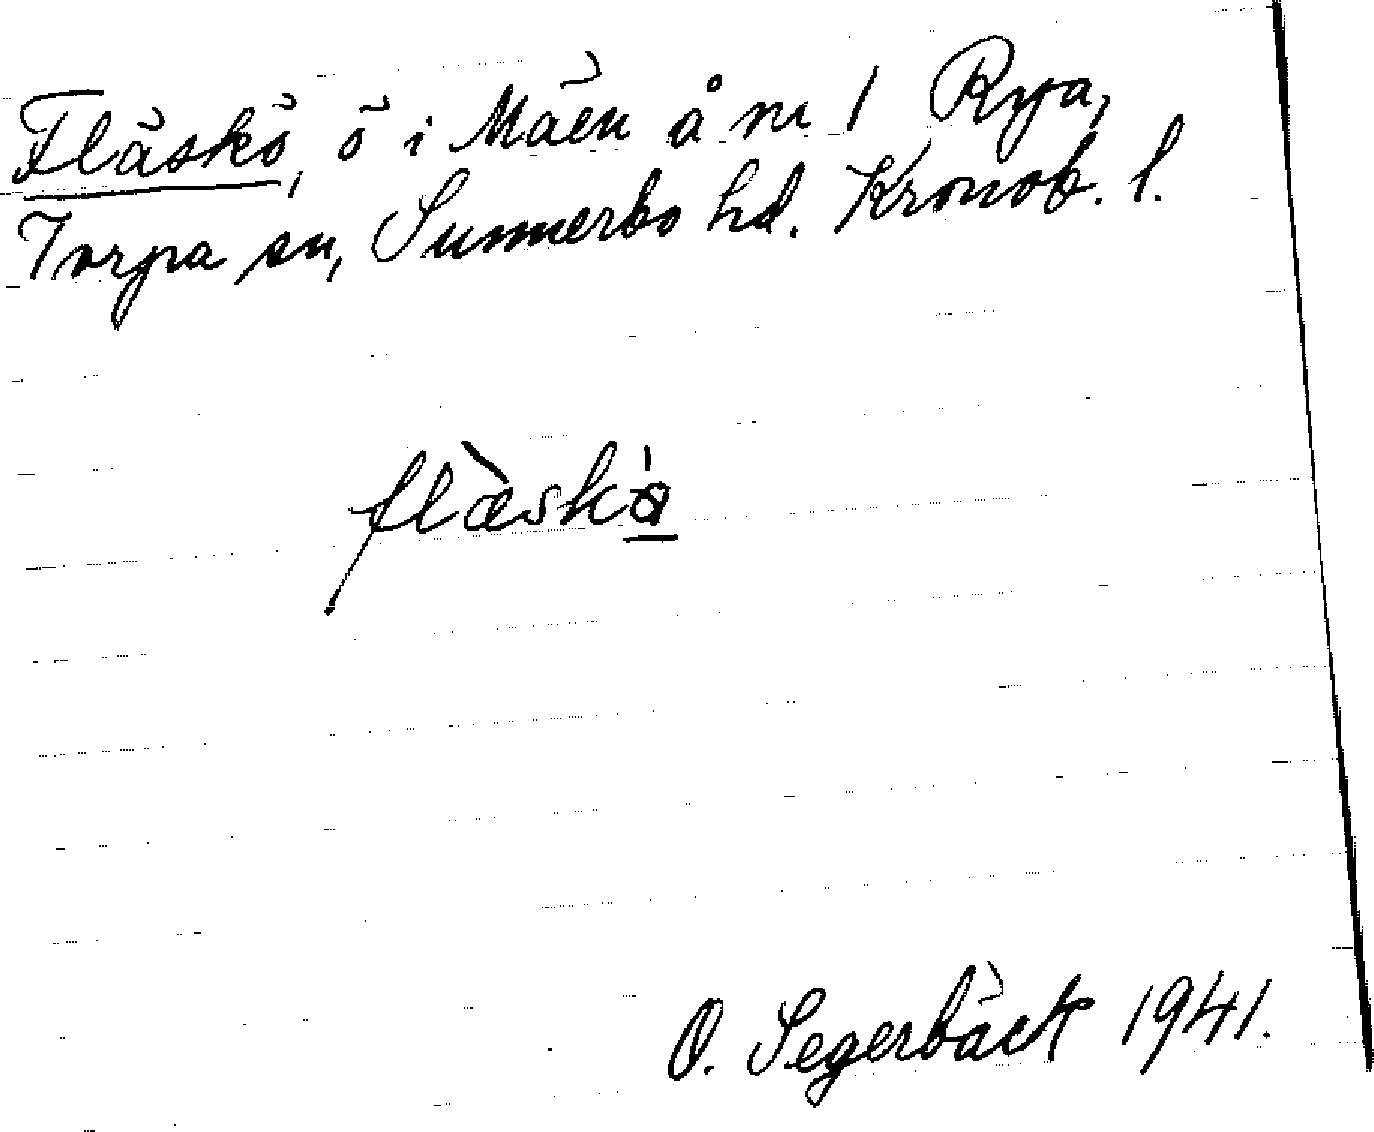 Fläskö, ö i Mäen å nr 1 Rya,
Torpa sn, Sunnerbo hd. Kronob. l.
flæskø
O. Segerbäck 1941.